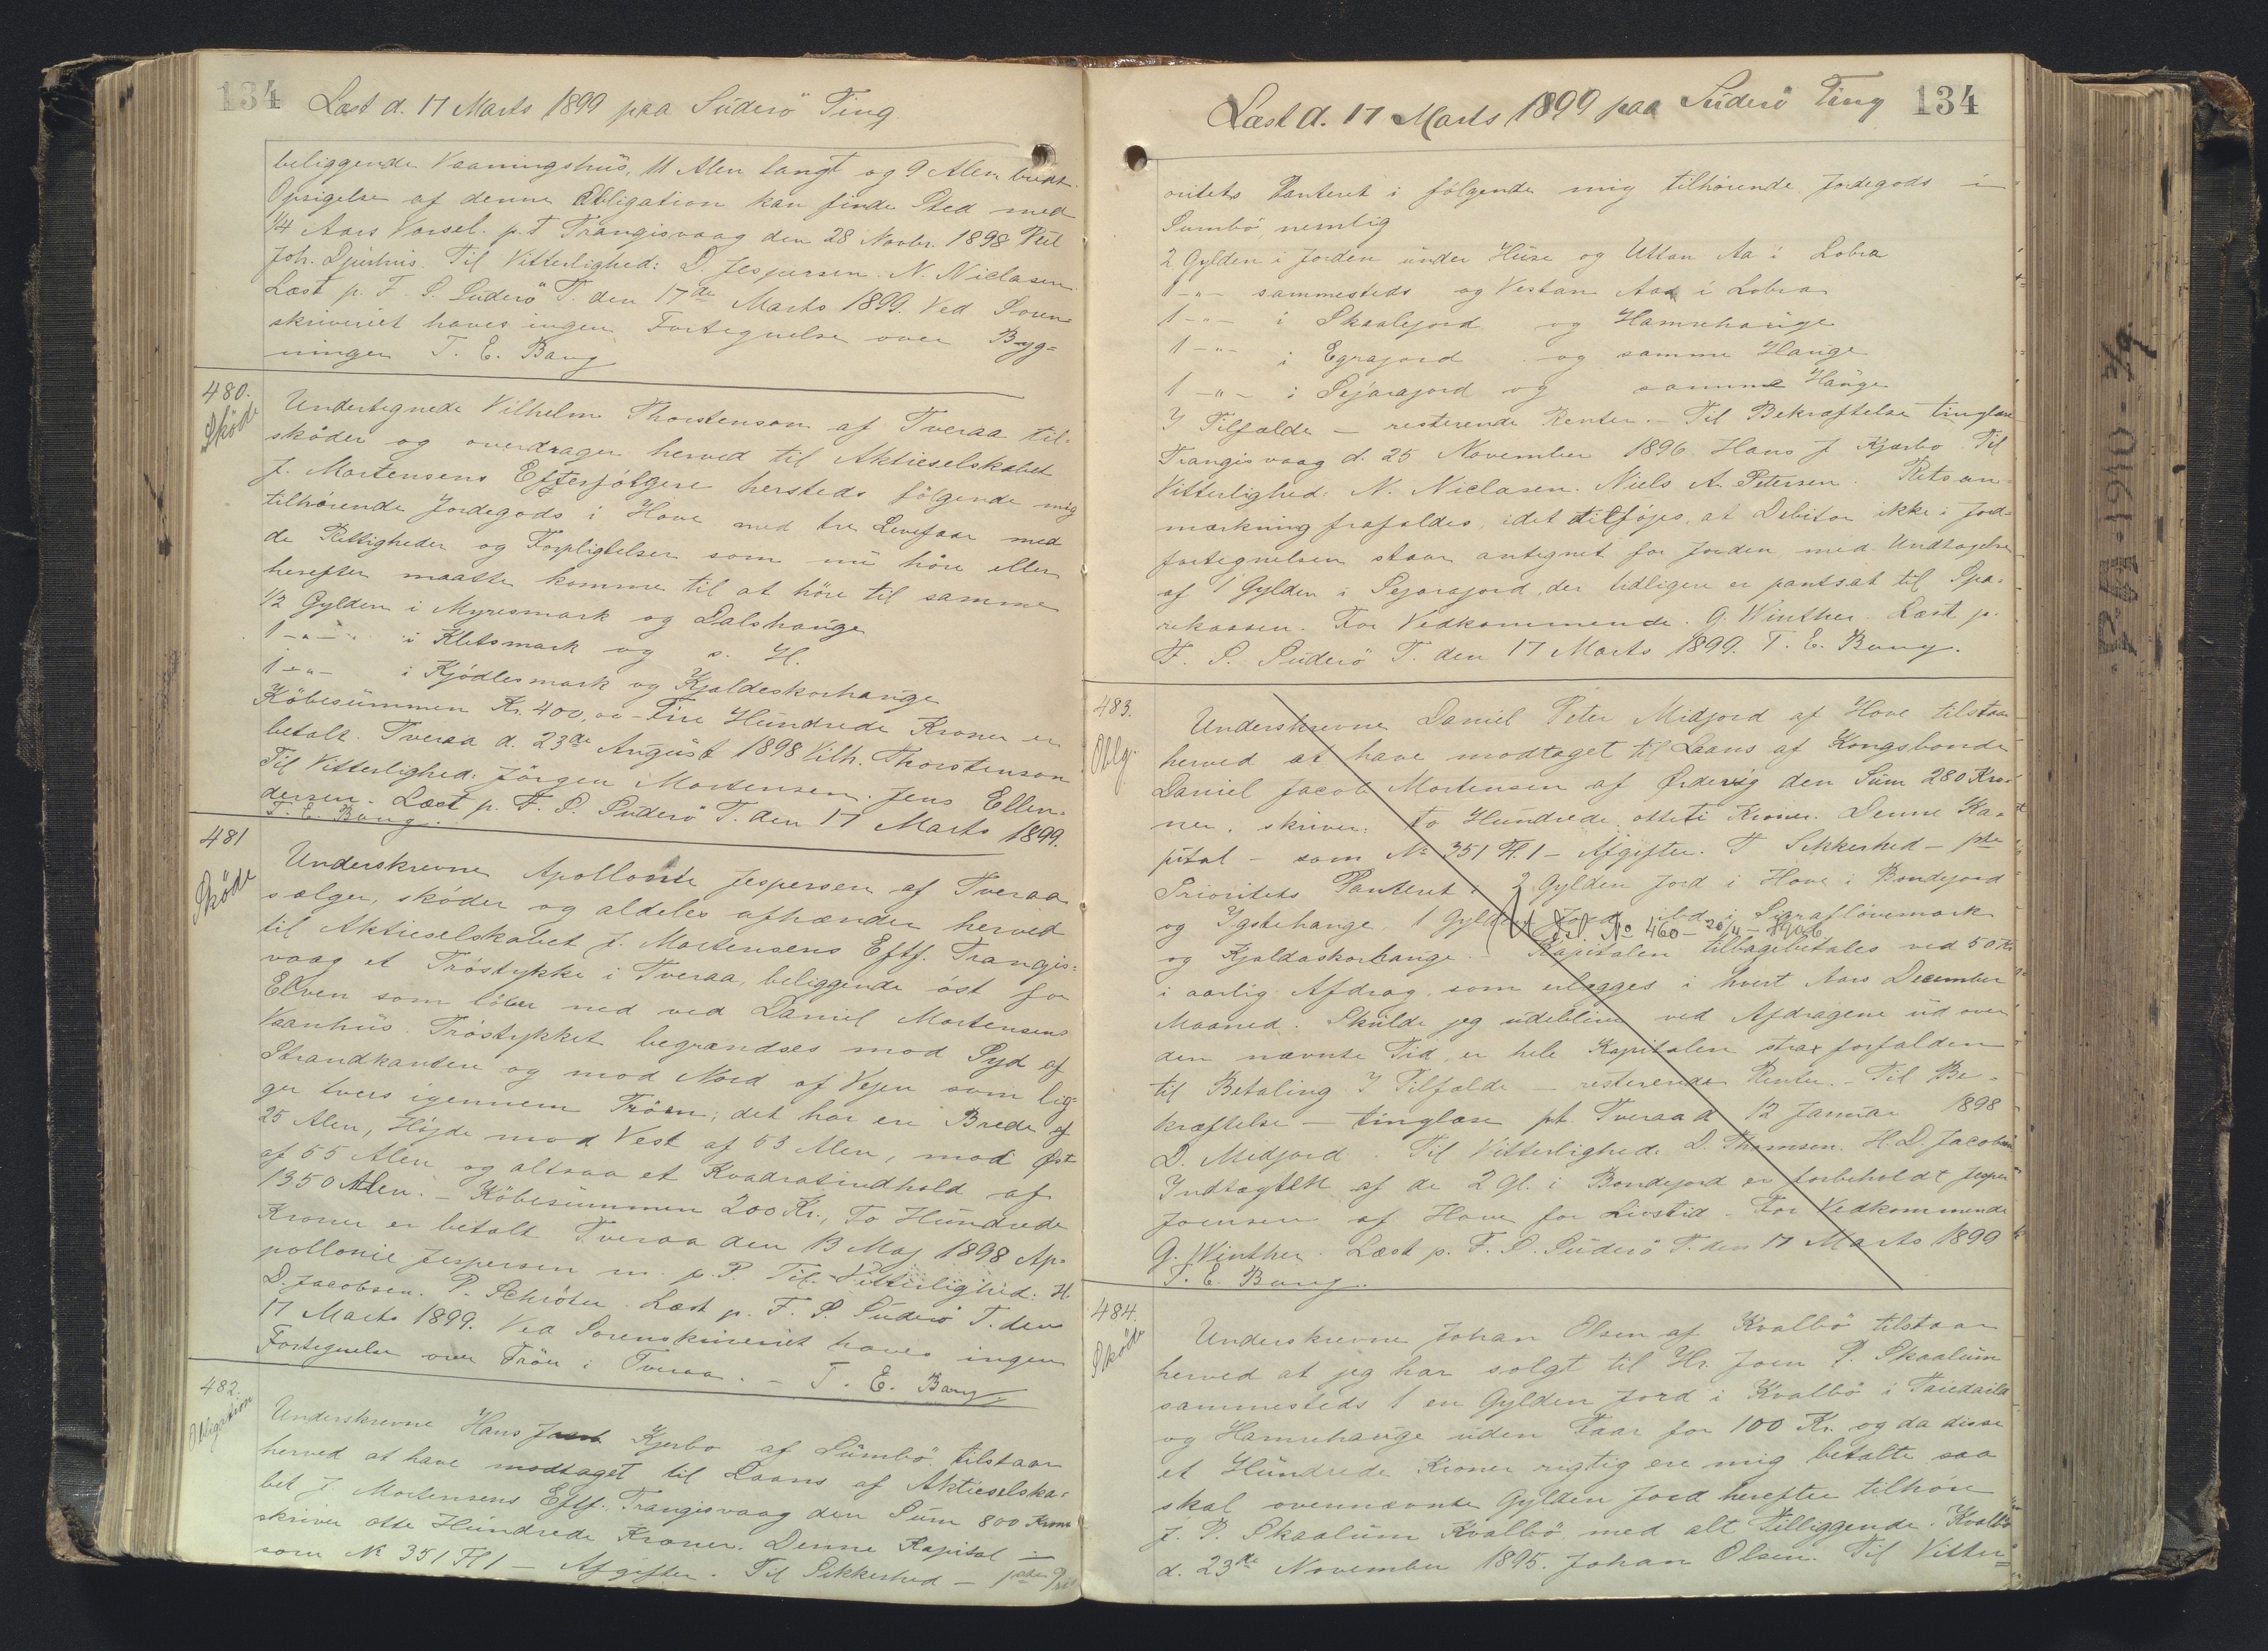 134 Læst d. 17 Marts 1899 paa Süderö Ting
beliggende Vaaningshus, 11 Alen langt og 9 Alen bredt.
Opsigelse af denne Obligation kan finde Sted med
1/4 Aars Varsel. p.t. Trangisvaag den 28 Novbr. 1898
Joh. Djurhuus. Til Vitterlighed: D. Jespersen. N. Niclasen
Læst p. F. S. Süderö T. den 17de Marts 1899. Ved Soren-
skriveriet haves ingen Fortegnelse over Byg=
ninger T. E. Bang
480.
Skøde
Undertegnede Vilhelm Thorstenson af Tveraa til-
skøder og overdrager herved til Aktieselskabet
J. Mortensens Efterfølgere hersteds følgende mig
tilhørende Jordegods i Hove med tre Levefaar med
de Rettigheder og Forpligtelser som nu høre eller
herefter maatte komme til at høre til samme
1/2 Gylden i Myresmark og Dalshauge
1 -"- i Kletsmark og s. H.
1 -"- i Kjødlesmark og Kjaldeskorhauge
Købesummen Kr. 400,00 - Fire Hundrede Kroner er
betalt. Tveraa d. 23de August 1898 Vilh. Thorstenson
Til Vitterlighed: Jörgen Mortensen. Jens Ellen-
dersen. Læst p. F. S. Süderö T. den 17 Marts 1899.
T. E. Bang.
481
Skøde
Underskrevne Apollonie Jespersen af Tveraa
sælger, skøder og aldeles afhænder herved
til Aktieselskabet J. Mortensens Eftf. Trangis=
vaag et Trøstykke i Tveraa, beliggende øst for
Elven som løber ned ved Daniel Mortensens
Vaanhus. Trøstykket begrændses mod Syd af
Strandkanten og mod Nord af Vejen som lig=
ger tvers igennem Trøen; det har en Brede af
25 Alen, Højde mod Vest af 53 Alen, mod Øst
af 55 Alen og altsaa et Kvadratindhold af
1350 Alen. - Købesummen 200 Kr., To Hundrede
Kroner er betalt Tveraa den 13 Maj 1898 Ap=
pollonie Jespersen m. p. P. Til Vitterlighed: H.
D. Jacobsen. P. Schröter. Læst p. F. S. Süderö T. den
17 Marts 1899. Ved Sorenskriveriet haves ingen
Fortegnelse over Trøer i Tveraa. - T. E. Bang.
482.
Obligation
Underskrevne Hans Kjerbo af Sumbø tilstaar
herved at have modtaget til Laans af Aktieselska=
bet J. Mortensens Eftf. Trangisvaag den Sum 800 Kroner
skriver otte Hundrede Kroner. Denne Kapital -
som № 351 H1 - Afgifter. Til Sikkerhed - 1ste Pri
Læst d. 17 Marts 1899 paa Süderö Ting 134
oritets Panteret i følgende mig tilhørende Jordegods i
Sumbø nemlig
2 Gylden i Jorden under Huse og Uttan Aa i Lobra
1 -"- sammesteds og Vestan Aa i Lobra
1 -"- i Skaalejord og Hamrehauge
1 -"- i Egrajord og samme Hauge
1 -"- i Sejarajord og samme Hauge
I Tilfælde - resterende Renter. - Til Bekræftelse tinglæse
Trangisvaag d. 25 November 1896. Hans J Kjærbo. Til
Vitterlighed: N. Niclasen. Niels A. Petersen. Retsan-
mærkning frafaldes, idet tilføjes, at Debitor ikke i Jord-
fortegnelsen staar antegnet for Jorden med Undtagelse
af 1 Gylden i Sejarajord, der tidligere er pantsat til Spa-
rekassen. For Vedkommende. G. Winther. Læst p.
F. S. Süderö T. den 17 Marts 1899. T. E. Bang.
483.
Oblg.
Underskrevne Daniel Peter Midjord af Hove tilstaar
herved at have modtaget til Laans af Kongsbonde
Daniel Jacob Mortensen af Ørdevig den Sum 280 Kro-
ner, skriver: to Hundrede otteti Kroner. Denne Ka-
pital - som № 351 H.1 - Afgifter. T Sikkerhed - 1ste
Prioritets Panteret i 2 Gylden Jord i Hove i Bondejord
og Ygstehauge, 1 Gylden Jord ibd. i Signaflövemark
№ 460 - 20/4 - 1906
og Kjaldaskorhauge. - Kapitalen tilbagebetales ved 50 Kr
i aarlig Afdrag, som erlægges i hvert Aars December
Maaned. Skulde jeg udeblive ved Afdragene ud over
den nævnte Tid, er hele Kapitalen strax forfalden
til Betaling I Tilfælde - resterende Renter. - Til Be-
kræftelse - tinglæse pt. Tveraa d 12 Januar 1898
D. Midjord. Til Vitterlighed: D. Thomsen. H. D. Jacobsen
Indtægten af de 2 Gl. i Bondejord er forbeholdt Jesper
Joensen af Hove for Livstid. - For Vedkommende
G. Winther. Læst p. F. S. Süderö T. den 17 Marts 1899
T. E. Bang.
484.
Skøde
Underskrevne Johan Olsen af Kvalbø tilstaar
herved at jeg har solgt til Hr. Joen P. Skaalum
sammesteds 1 en Gylden Jord i Kvalbø i
og Hamrehauge uden Faar for 100 Kr. og da disse
et Hundrede Kroner rigtig ere mig betalte saa
skal ovennævnte Gylden Jord herefter tilhøre
J. P. Skaalum Kvalbø med alt Tilliggende. Kvalbø
d. 23de November 1895. Johan Olsen. Til Vitter=